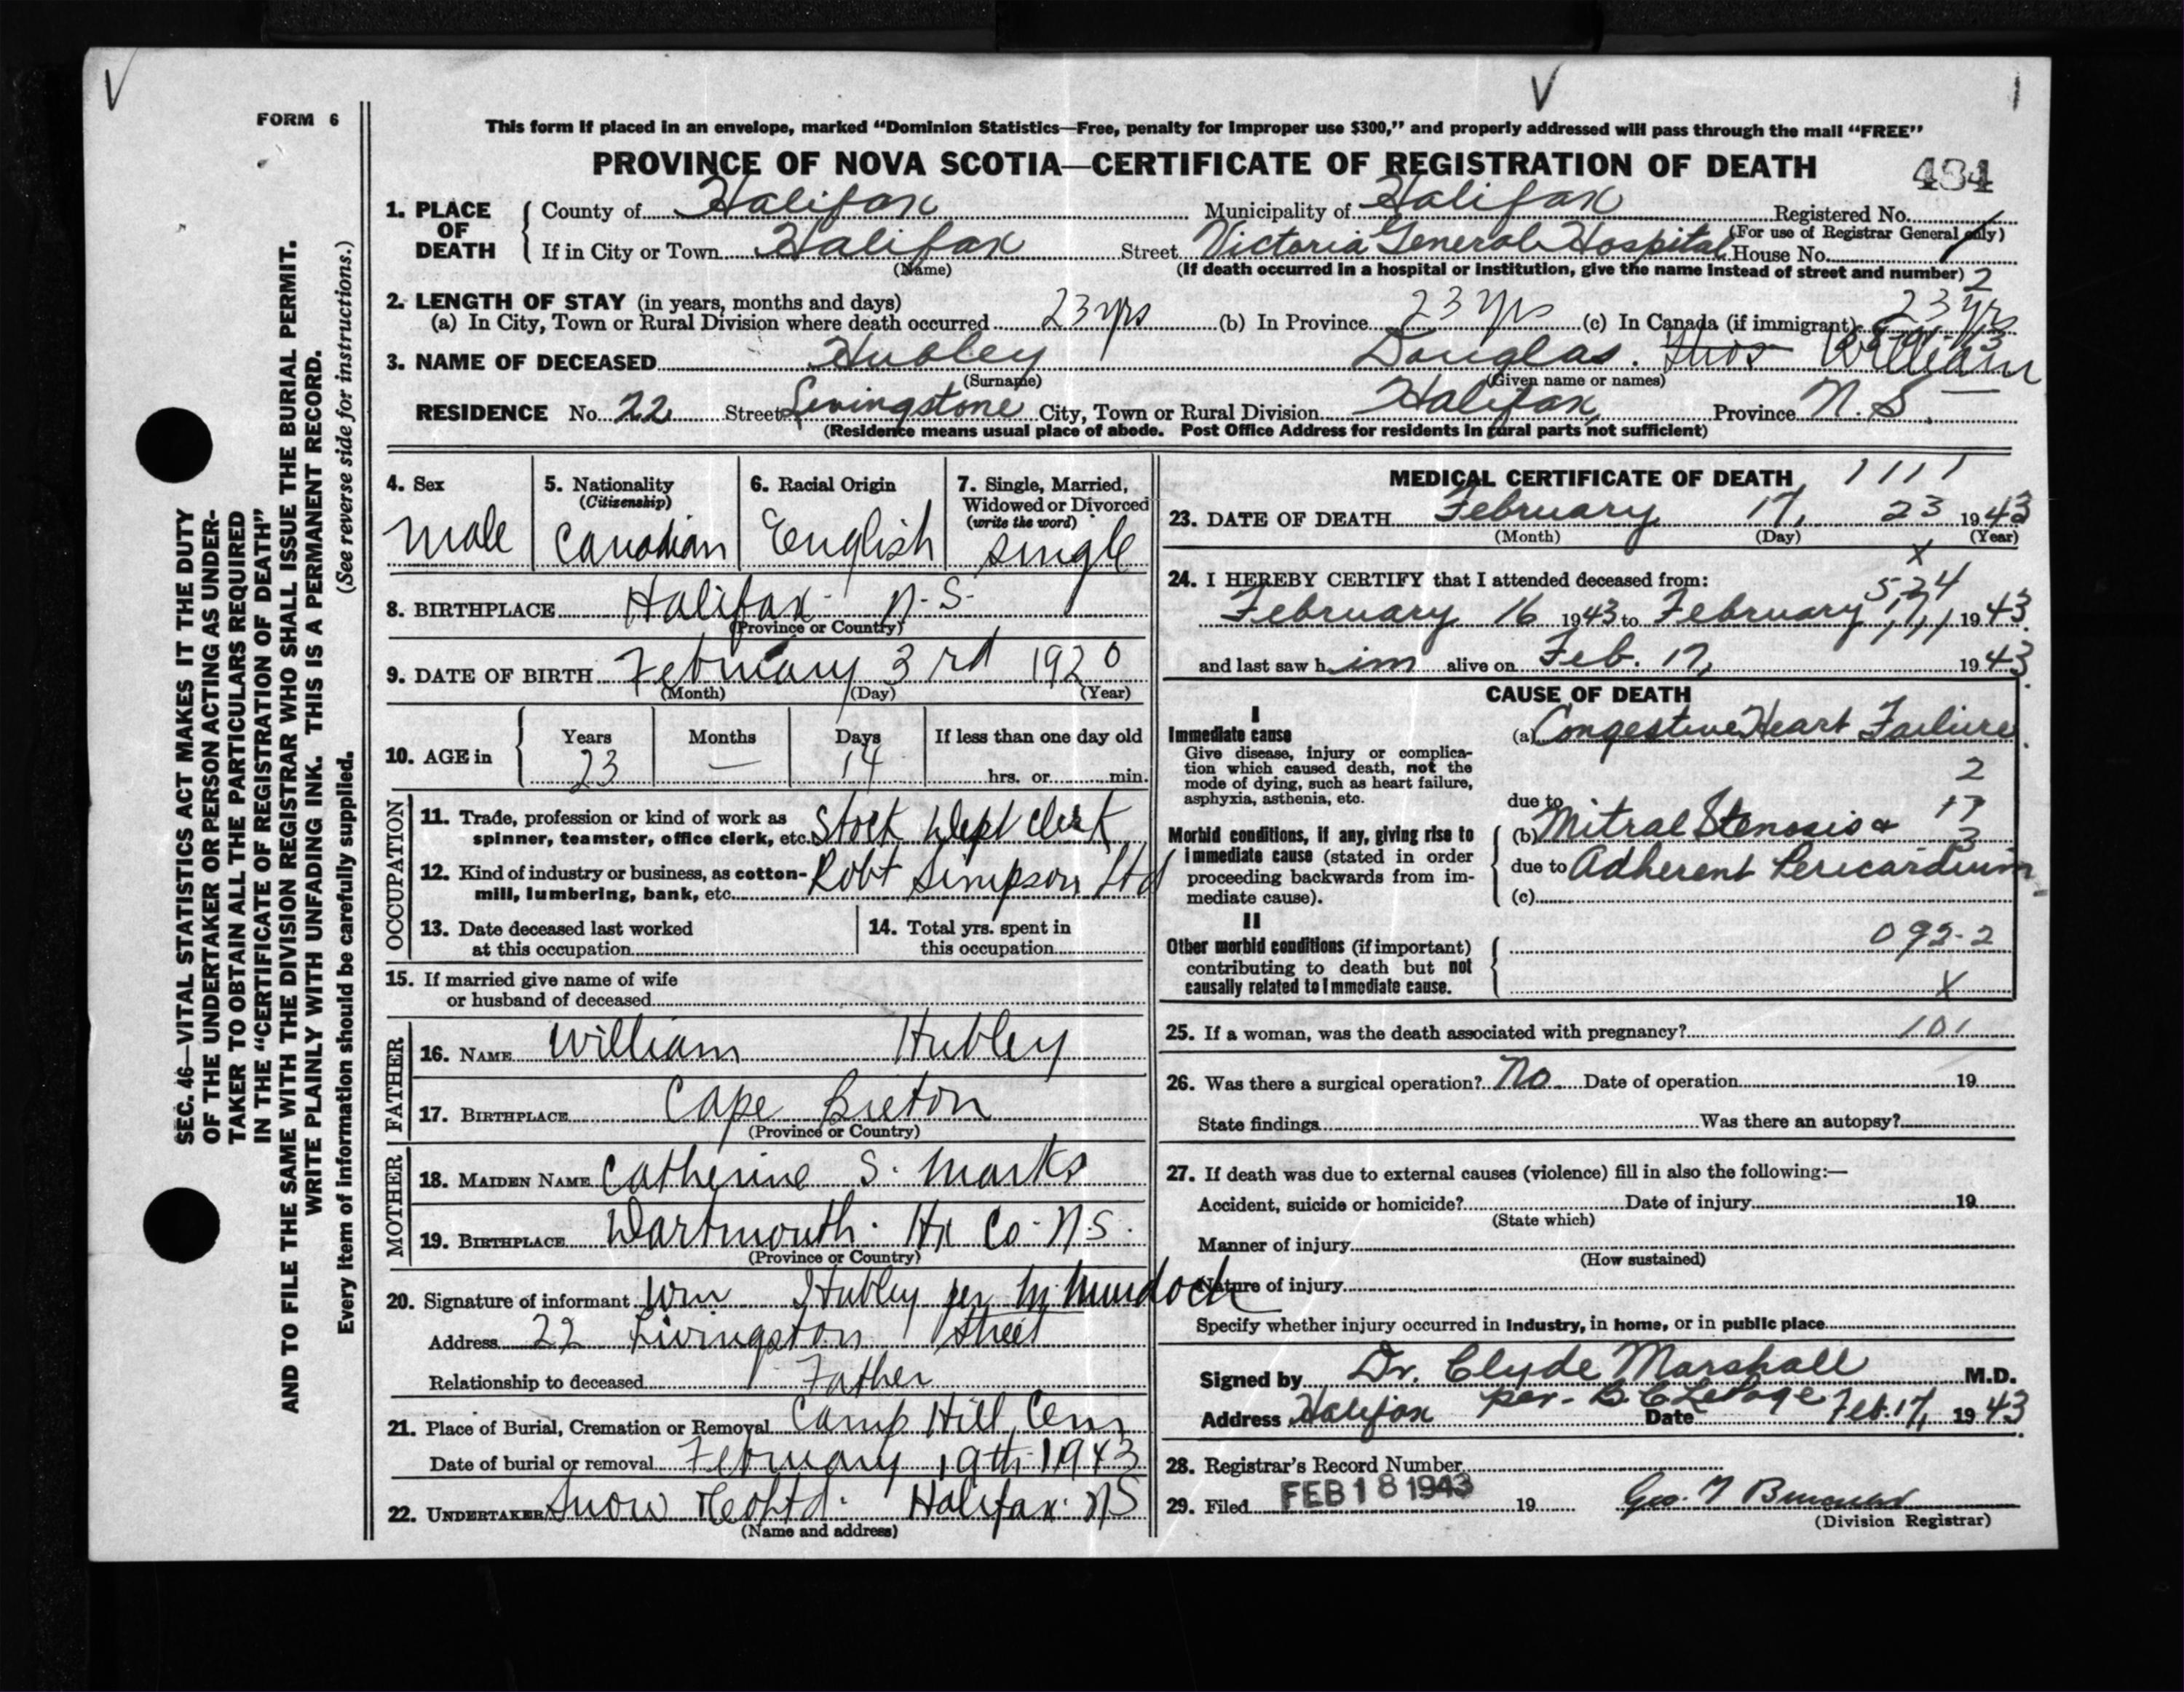 FORM 6
This form if placed in an envelope, marked “Dominion Statistics—Free, penalty for improper use $300,” and properly addressed will pass through the mail “FREE”
PROVINCE OF NOVA SCOTIA—CERTIFICATE OF REGISTRATION OF DEATH
484
1. PLACE OF DEATH
County of Halifax Municipality of Halifax Registered No.
(For use of Registrar General only)
If in City or Town Halifax Street Victoria General Hospital House No.
(Name) (If death occurred in a hospital or institution, give the name instead of street and number) 2
2. LENGTH OF STAY (in years, months and days)
(a) In City, Town or Rural Division where death occurred 23 yrs (b) In Province 23 yrs (c) In Canada (if immigrant) 23 yrs
3. NAME OF DECEASED Hubley Douglas. Thos William
(Surname) (Given name or names)
RESIDENCE No. 22 Street Levingstone City, Town or Rural Division Halifax Province N. S.
(Residence means usual place of abode. Post Office Address for residents in rural parts not sufficient)
4. Sex
male
5. Nationality
(Citizenship)
Canadian
6. Racial Origin
English
7. Single, Married,
Widowed or Divorced
(write the word)
single
8. BIRTHPLACE Halifax N.S.
(Province or Country)
9. DATE OF BIRTH February 3rd 1920
(Month) (Day) (Year)
10. AGE in
Years Months Days If less than one day old
23 — 14 hrs. or min.
OCCUPATION
11. Trade, profession or kind of work as
spinner, teamster, office clerk, etc. Stock Dept Clerk
12. Kind of industry or business, as cotton-
mill, lumbering, bank, etc. Robt Simpson Ltd
13. Date deceased last worked
at this occupation
14. Total yrs. spent in
this occupation
15. If married give name of wife
or husband of deceased
FATHER
16. NAME William Hubley
17. BIRTHPLACE Cape Breton
(Province or Country)
MOTHER
18. MAIDEN NAME Catherine S. Marks
19. BIRTHPLACE Dartmouth. Hx Co. N.S.
(Province or Country)
20. Signature of informant Wm Hubley per M. Murdoch
Address 22 Livingston Street
Relationship to deceased Father
21. Place of Burial, Cremation or Removal Camp Hill Cem
Date of burial or removal February 19th 1943
22. UNDERTAKER Snow & Co Ltd. Halifax. NS
(Name and address)
MEDICAL CERTIFICATE OF DEATH 1111
23. DATE OF DEATH February 17, 23 1943
(Month) (Day) (Year)
x
24. I HEREBY CERTIFY that I attended deceased from:
524
February 16 1943 to February 17, 1943.
and last saw him alive on Feb. 17, 1943.
CAUSE OF DEATH
I
Immediate cause
Give disease, injury or complica-
tion which caused death, not the
mode of dying, such as heart failure,
asphyxia, asthenia, etc.
(a) Congestive Heart Failure.
2
due to 17
Morbid conditions, if any, giving rise to
immediate cause (stated in order
proceeding backwards from im-
mediate cause).
(b) Mitral Stenosis & 3
due to Adherent Pericardium
(c)
II
Other morbid conditions (if important)
contributing to death but not
causally related to immediate cause.
092-2
x
25. If a woman, was the death associated with pregnancy? 101
26. Was there a surgical operation? No Date of operation 19
State findings Was there an autopsy?
27. If death was due to external causes (violence) fill in also the following:—
Accident, suicide or homicide? Date of injury 19
(State which)
Manner of injury
(How sustained)
Nature of injury
Specify whether injury occurred in industry, in home, or in public place
Signed by Dr. Clyde Marshall M.D.
per. B.C. LePage
Address Halifax Date Feb. 17, 1943.
28. Registrar's Record Number
29. Filed FEB 18 1943 19
(Division Registrar)
SEC. 46—VITAL STATISTICS ACT MAKES IT THE DUTY
OF THE UNDERTAKER OR PERSON ACTING AS UNDER-
TAKER TO OBTAIN ALL THE PARTICULARS REQUIRED
IN THE “CERTIFICATE OF REGISTRATION OF DEATH”
AND TO FILE THE SAME WITH THE DIVISION REGISTRAR WHO SHALL ISSUE THE BURIAL PERMIT.
WRITE PLAINLY WITH UNFADING INK. THIS IS A PERMANENT RECORD.
Every item of information should be carefully supplied. (See reverse side for instructions.)